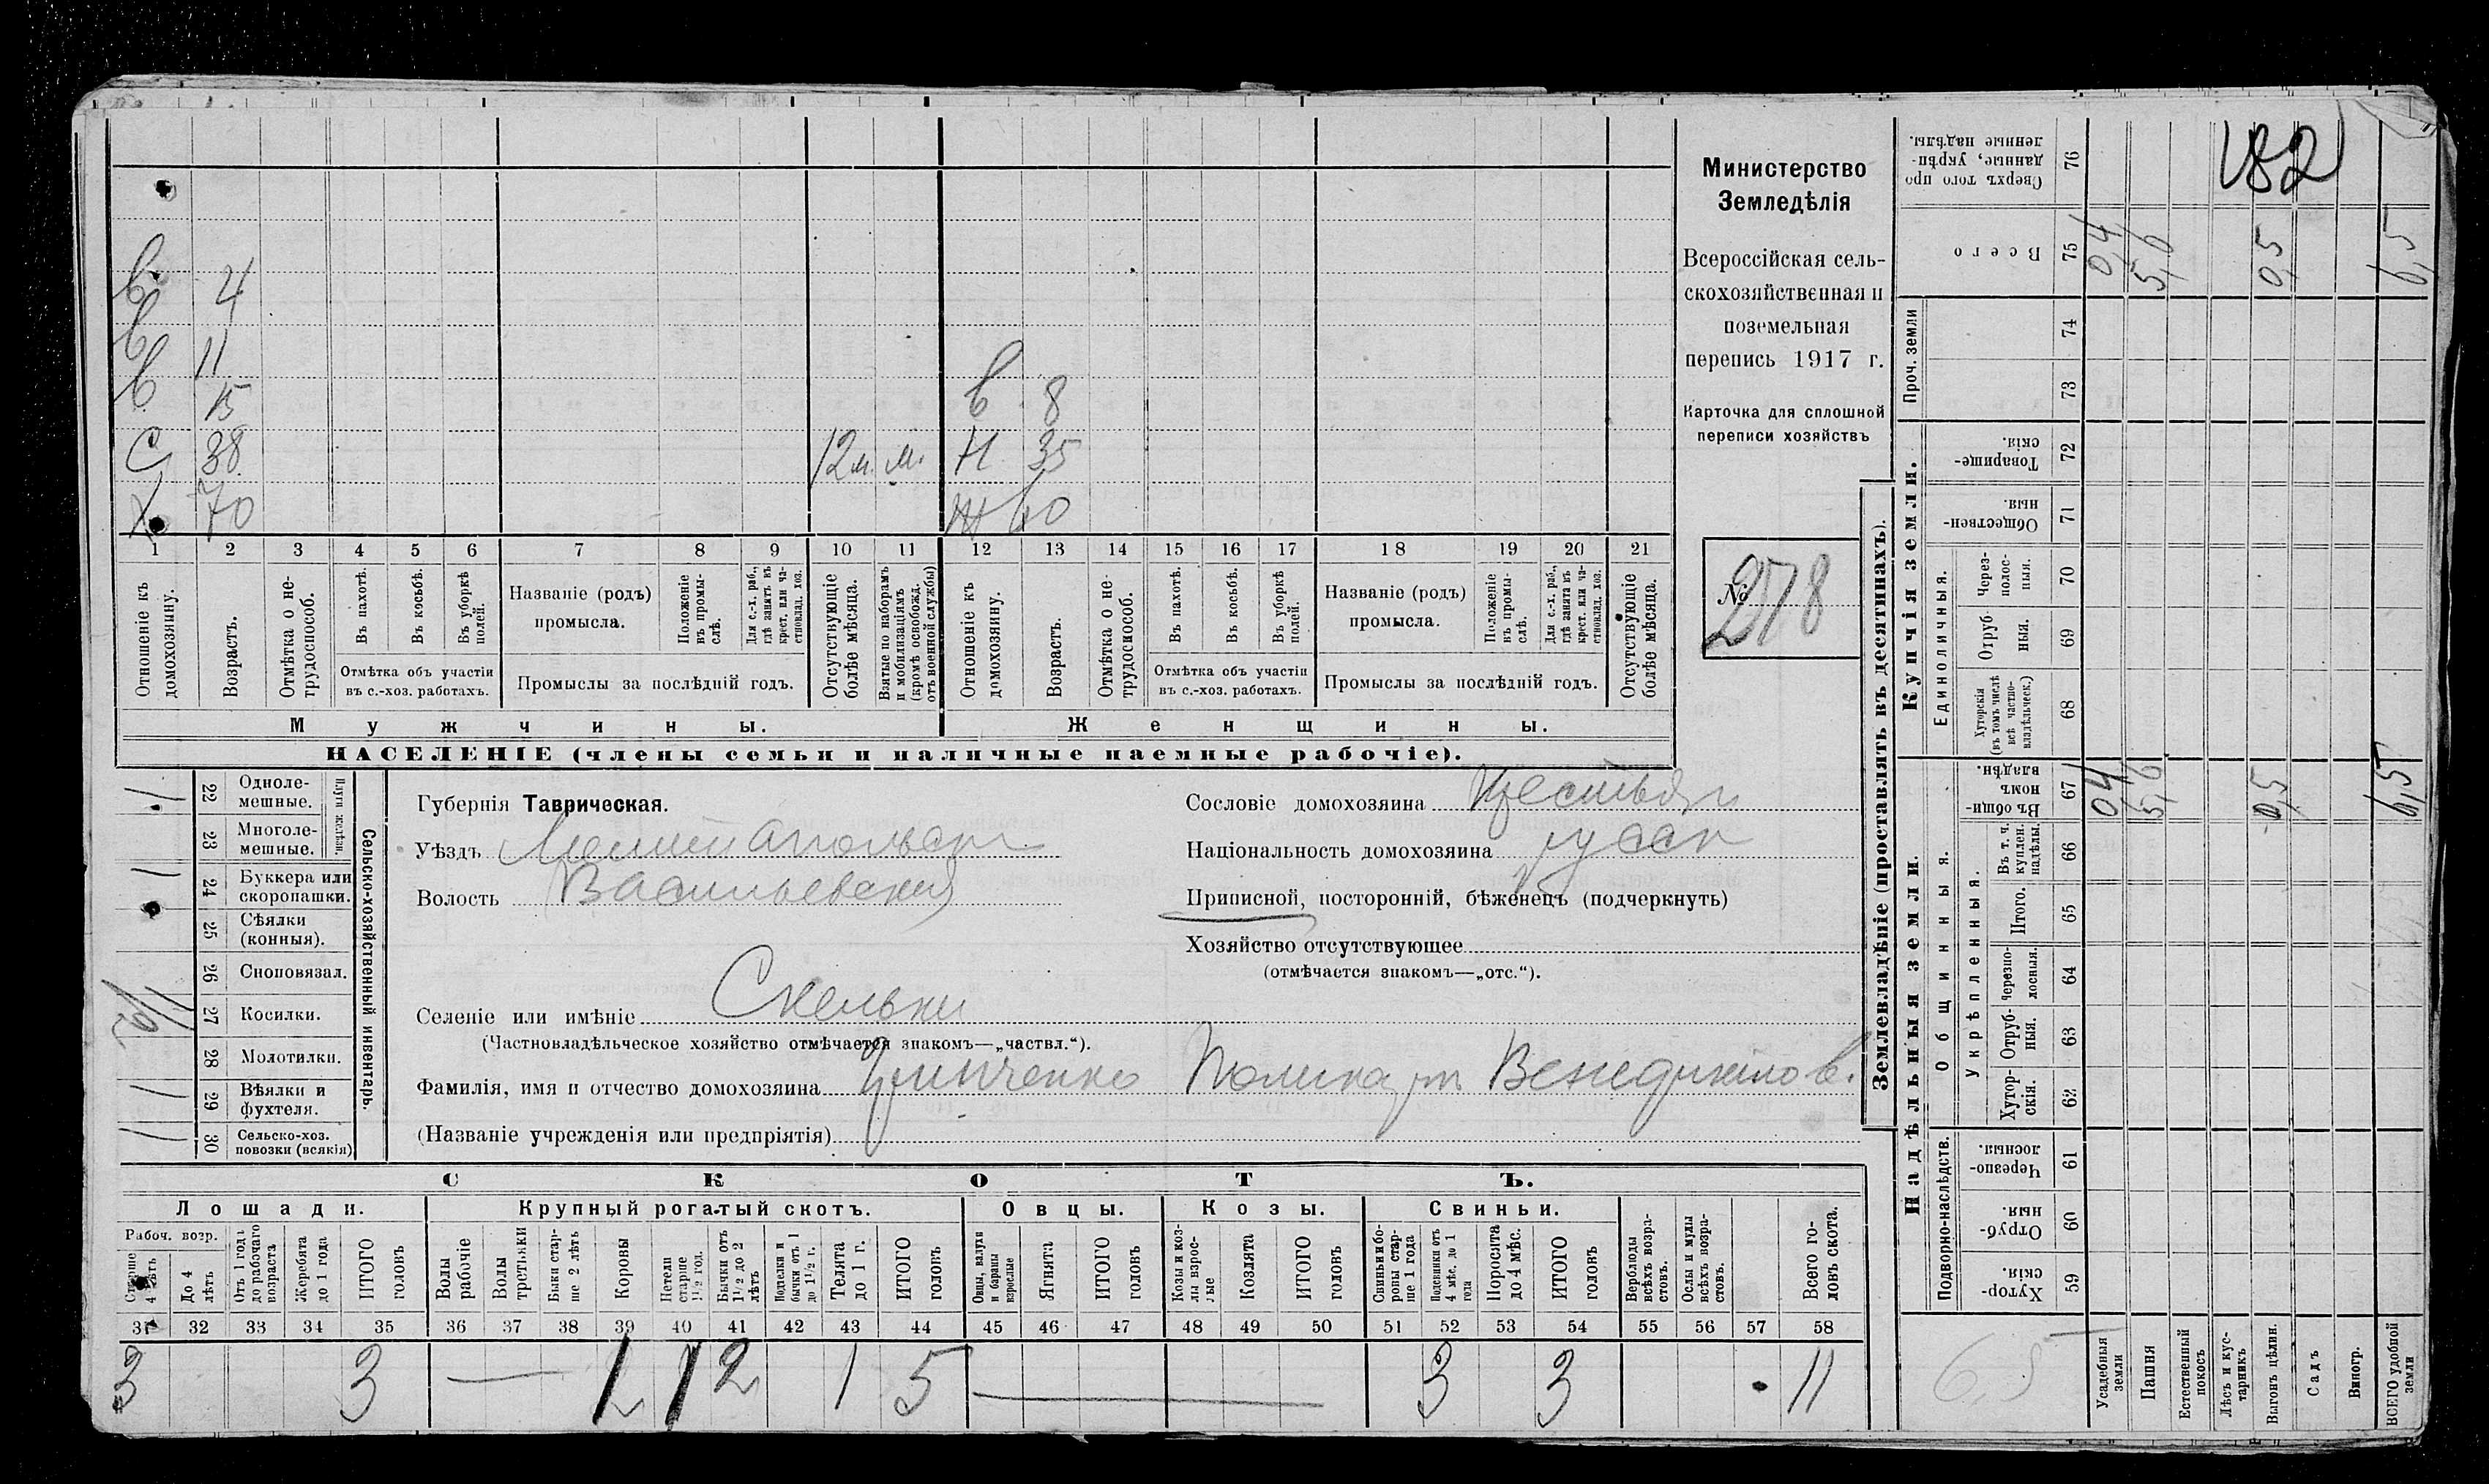 Министерство
Земледѣлія
Всероссійская сель-
скохозяйственная и
поземельная
перепись 1917 г.
Карточка для сплошной
переписи хозяйствъ
№ 278
182
в 4
в 11
в 15
в 8
С 38 12 м. м. Н 35
Х 70 Ж 60
1 2 3 4 5 6 7 8 9 10 11 12 13 14 15 16 17 18 19 20 21
Отношеніе къ домохозяину.
Возрастъ.
Отмѣтка о не-трудоспособ.
Въ пахотѣ.
Въ косьбѣ.
Въ уборкѣ полей.
Отмѣтка объ участіи
въ с.-хоз. работахъ.
Названіе (родъ)
промысла.
Положеніе въ промы-слѣ.
Для с.-х. раб., гдѣ занятъ въ крест. или ча-стновлад. хоз.
Промыслы за послѣдній годъ.
Отсутствующіе болѣе мѣсяца.
Взятые по наборамъ и мобилизаціямъ (кромѣ освобожд. отъ военной службы)
Отношеніе къ домохозяину.
Возрастъ.
Отмѣтка о не-трудоспособ.
Въ пахотѣ.
Въ косьбѣ.
Въ уборкѣ полей.
Отмѣтка объ участіи
въ с.-хоз. работахъ.
Названіе (родъ)
промысла.
Положеніе въ промы-слѣ.
Для с.-х. раб., гдѣ занята въ крест. или ча-стновлад. хоз.
Промыслы за послѣдній годъ.
Отсутствующіе болѣе мѣсяца.
Мужчины. Женщины.
НАСЕЛЕНІЕ (члены семьи и наличные наемные рабочіе).
Сельско-хозяйственный инвентарь.
Плуги желѣзн.
1 22 Одноле-мешные.
23 Многоле-мешные.
1 24 Буккера или скоропашки.
25 Сѣялки (конныя).
26 Сноповязал.
27 Косилки.
28 Молотилки.
1 29 Вѣялки и фухтеля.
1 30 Сельско-хоз. повозки (всякія)
Губернія Таврическая.
Уѣздъ Мелитопольск
Волость Васильевская
Сословіе домохозяина крестьян
Національность домохозяина русск
Приписной, посторонній, бѣженецъ (подчеркнуть)
Хозяйство отсутствующее
(отмѣчается знакомъ—„отс.“).
Селеніе или имѣніе Скельки
(Частновладѣльческое хозяйство отмѣчается знакомъ—„частвл.“).
Фамилія, имя и отчество домохозяина Гринченко Поликарп Венедиктов.
(Названіе учрежденія или предпріятія)
СКОТЪ.
Лошади. Крупный рогатый скотъ. Овцы. Козы. Свиньи.
Рабоч. возр.
Старше 4 лѣтъ
До 4 лѣтъ
Отъ 1 года до рабочаго возраста
Жеребята до 1 года
ИТОГО головъ
Волы рабочіе
Волы третьяки
Быки стар-ше 2 лѣтъ
Коровы
Нетели старше 1½ год.
Бычки отъ 1½ до 2 лѣтъ
Подтелки и бычки отъ 1 до 1½ г.
Телята до 1 г.
ИТОГО головъ
Овцы, валухи и бараны взрослые
Ягнята
ИТОГО головъ
Козы и коз-лы взрос-лые
Козлята
ИТОГО головъ
Свиньи и бо-ровы стар-ше 1 года
Подсвинки отъ 4 мѣс. до 1 года
Поросята до 4 мѣс.
ИТОГО головъ
Верблюды всѣхъ возра-стовъ.
Ослы и мулы всѣхъ возра-стовъ.
Всего го-ловъ скота.
31 32 33 34 35 36 37 38 39 40 41 42 43 44 45 46 47 48 49 50 51 52 53 54 55 56 57 58
3 3 — 1 1 2 1 5 — 3 3 11
Землевладѣніе (проставлять въ десятинахъ).
Купчія земли.
Надѣльныя земли.
Сверхъ того про-данные, укрѣп-ленные надѣлы. 76
Всего 75 0,4 5,6 0,5 6,5
Проч. земли 74
73
Товарище-скія. 72
Обществен-ныя. 71
Единоличныя.
Через-полос-ныя. 70
Отруб-ныя. 69
Хуторскія (въ томъ числѣ всѣ частно-владѣльческ.) 68
Общинныя.
Въ общин-номъ владѣн. 67 0,4 5,6 0,5 6,5
Укрѣпленныя.
Въ т. ч. куплен. надѣлы. 66
Итого. 65
Черезпо-лосныя. 64
Отруб-ныя. 63
Хутор-скія. 62
Подворно-наслѣдств.
Черезпо-лосныя. 61
Отруб-ныя 60
Хутор-скія. 59
6,5
Усадебныя земли
Пашня
Естественный покосъ
Лѣсъ и кус-тарникъ
Выгонъ цѣлин.
Садъ
Виногр.
ВСЕГО удобной земли